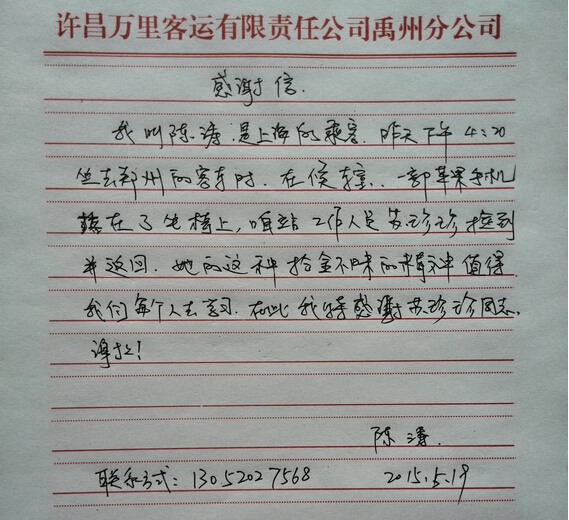 许昌万里客运有限责任公司禹州分公司
感谢信.
我叫陈涛,是上海的乘客.昨天下午4:20
坐去郑州的客车时.在侯车室.一部苹果手机
落在了坐椅上,咱站工作人员苏珍珍捡到
并返回.她的这种拾金不昧的精神值得
我们每个人去学习.在此我特感谢苏珍珍同志.
谢谢!
陈涛.
联系方式:13052027568 2015.5.19